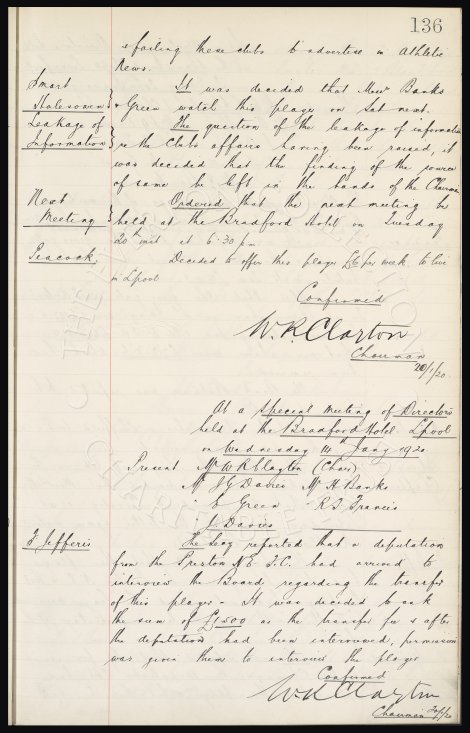 136
& failing these clubs to advertise in Athletic
News.
Smart
Halesowen
It was decided that Messrs Banks
& Green watch this player on Sat next.
Leakage of
Information
The question of the leakage of information
re the Clubs affairs having been raised, it
was decided that the finding of the source
of same be left in the hands of the Chairman
Next
Meeting
Ordered that the next meeting be
held at the Bradford Hotel on Tuesday
20th inst at 6.30 pm
Peacock
Decided to offer this player per week to live
in Lpool
Confirmed
W.R. Clayton
Chairman
20/1/20.
At a Special Meeting of Directors
held at the Bradford Hotel Lpool
on Wednesday 14th Jany 1920
Present Mr W R Clayton (Chair)
Mr J G Davies Mr H Banks
Green R. J. Francis
J. Davies
F Jefferis
The Secy reported that a deputation
from the Preston N.E. F.C. had arrived to
interview the Board regarding the transfer
of this player - It was decided to ask
the sum of £1500 as the transfer fee & after
the deputation had been interviewed, permission
was given them to interview the player
Confirmed
W.R. Clayton
Chairman 20/1/20